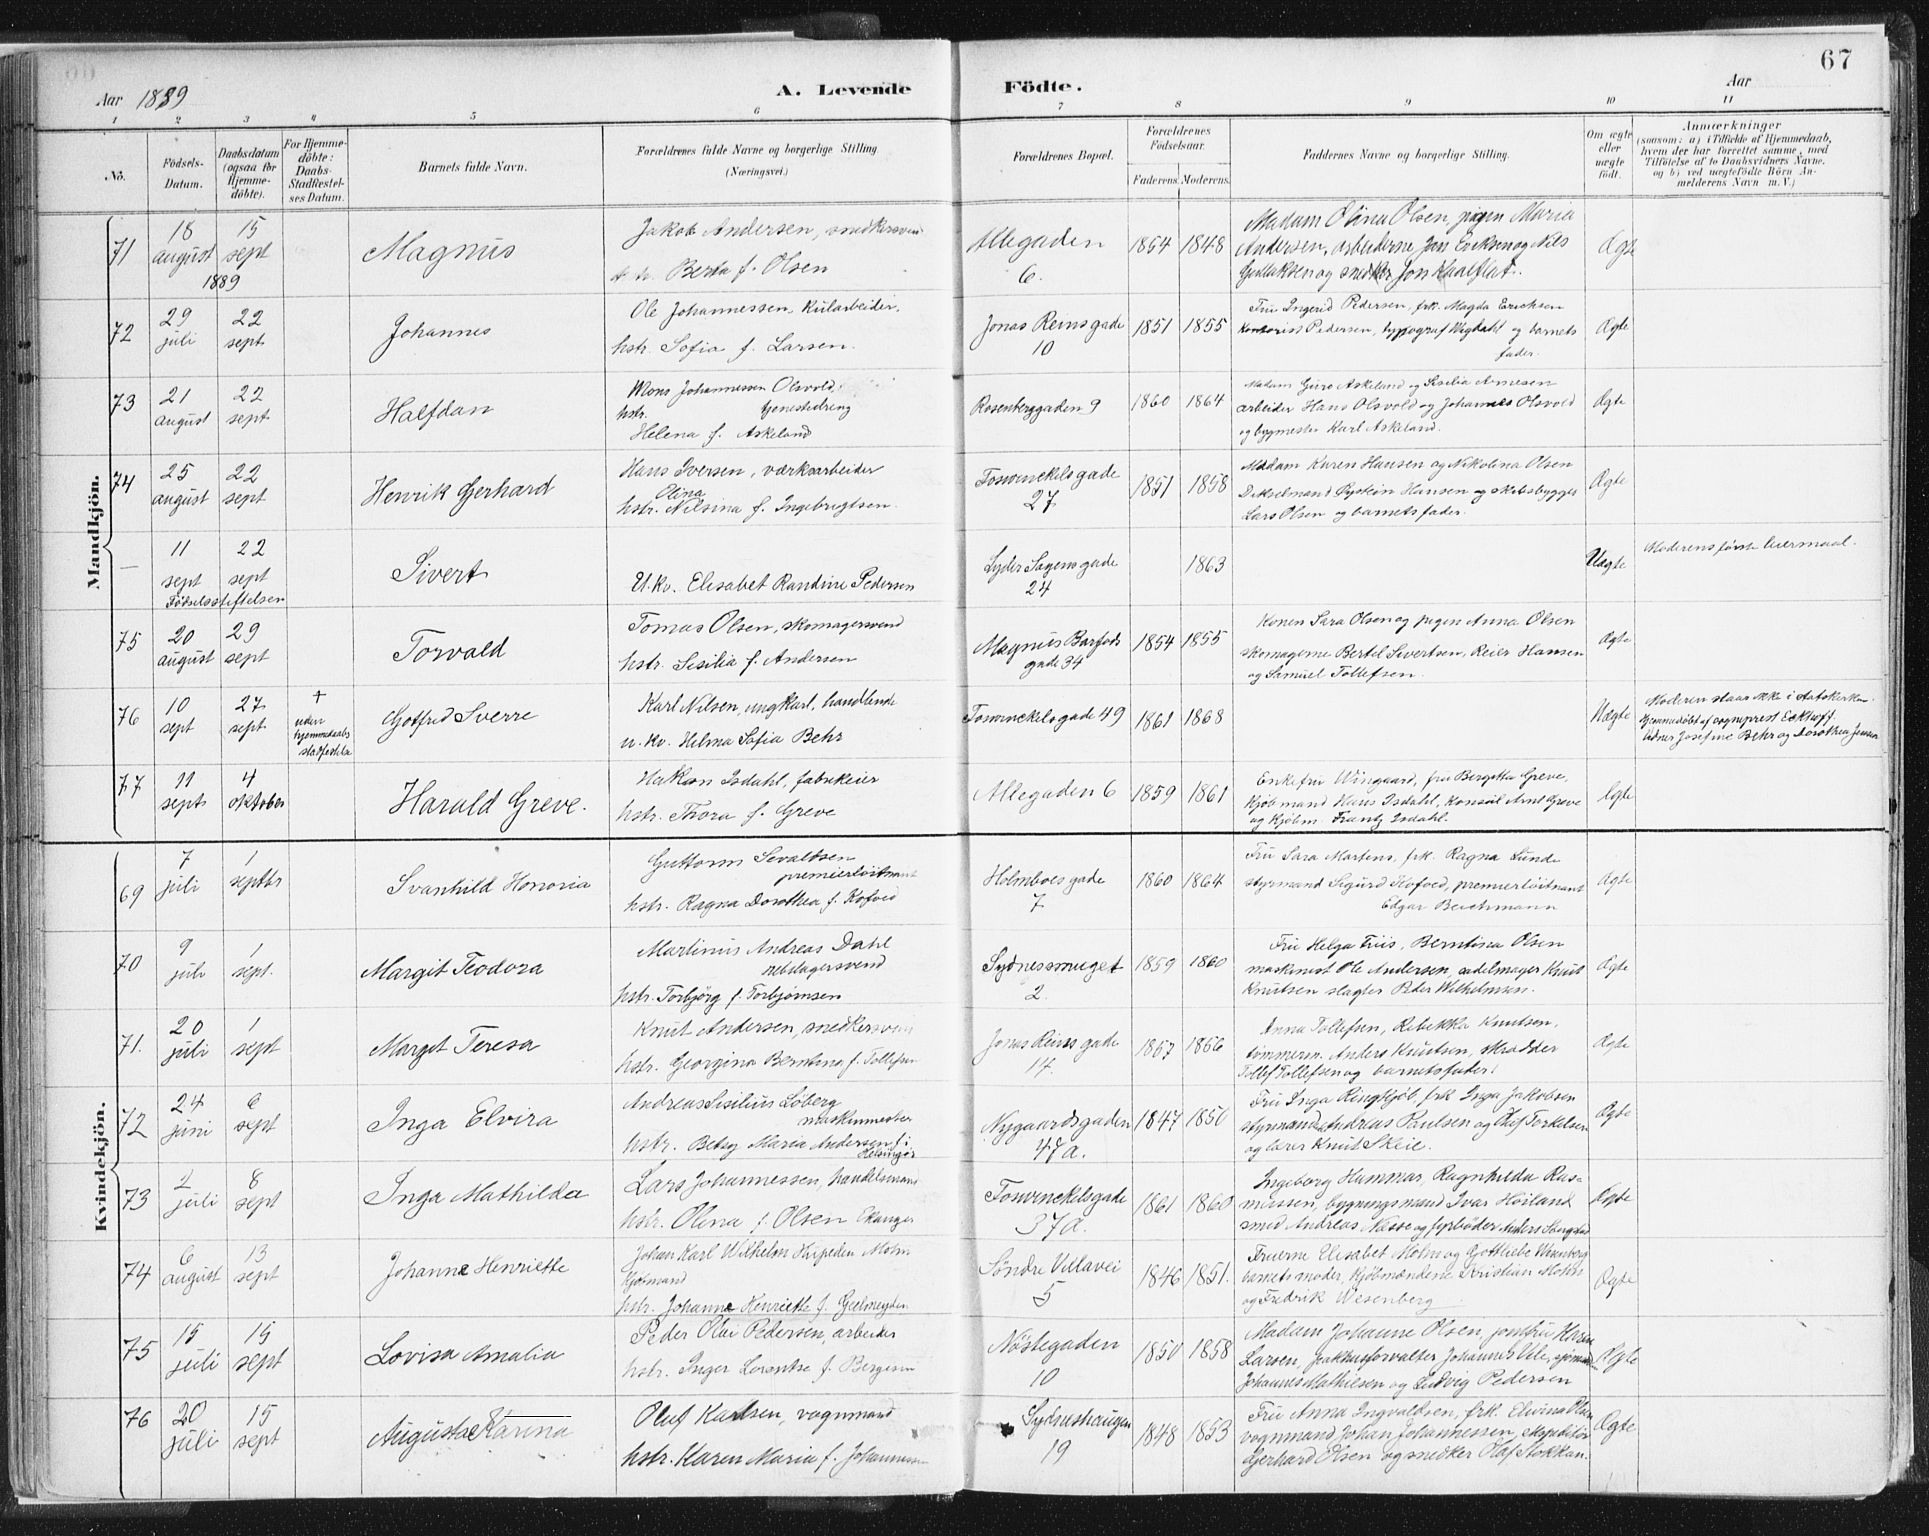 67
Aar 1889
A. Levende Födte.
Aar
1 2 3 4 5 6 7 8 9 10 11
No.
Födsels-Datum.
Daabsdatum (ogsaa for Hjemmedöbte).
For Hjemmedöbte: Daabs-Stadfæstelses Datum.
Barnets fulde Navn.
Forældrenes fulde Navne og borgerlige Stilling (Næringsvei.)
Forældrenes Bopæl.
Forældrenes Födselsaar.
Faderens. Moderens.
Faddernes Navne og borgerlige Stilling.
Om ægte eller uægte födt.
Anmærkninger
(saasom: a) i Tilfælde af Hjemmedaab, hvem der har forrettet samme, med Tilföielse af to Daabsvidners Navne. og b) ved uægtefödte Börn Anmelderens Navn m. V.)
Mandkjön.
71 18 august 1889 15 sept Magnus
Jakob Andersen, snedkersven
Berta f. Olsen
Allegaden 6. 1854 1848
Madam Olina Olsen, pigen Maria
Andersen, arbeiderne Jan Eriksen og Nils
og snedker Jon
Ægte
72 29 juli 22 sept Johannes
Ole Johannessen, kularbeider.
hstr. Sofia f. Larsen.
Jonas Reins gade 10 1851 1855
Fru Ingerid Pedersen, frk. Magda Erichsen
kontorist Pedersen, typograf Wigdahl og barnets
fader.
Ægte
73 21 august 22 sept Halfdan
Mons Johannessen Olsvold,
hstr. tjenestedreng
Helena f. Askeland
Rosenberggaden 9 1860 1864
Madam Guro Askeland og Sesilia Arnesen
arbeider Hans Olsvold og Johannes Olsvold
og bygmester Karl Askeland.
Ægte
74 25 august 22 sept Henrik Gerhard
Hans Iversen, værksarbeider
Olina
hstr. Nilsina f. Ingebrigtsen.
Toswinckelsgade 27 1851 1858
Madam Karen Hansen og Nikolina Olsen
Dekselmand Øystein Hansen og skibsbygger
Lars Olsen og barnets fader.
Ægte
— 11 sept 22 sept Sivert
Fødselsstiftelsen
U.kv. Elisabet Randine Pedersen
Lyder Sagens gade 24 1863
Uægte
Moderens første leiermaal.
75 20 august 29 sept Torvald
Tomas Olsen, skomagersvend
hstr. Sesilia f. Andersen
Magnus Barfods gade 34 1854 1855
Konen Sara Olsen og pigen Anna Olsen
skomagerne Bertel Sivertsen, Reier Hansen
og Samuel Tollefsen.
Ægte
76 10 sept 27 sept + uden hjemmedaabs stadfæstelse Gotfred Sverre
Karl Nilsen, ungkarl, handlende
u. kv. Helma Sofia Behr
Toswinckelsgade 49 1861 1868
Uægte
Moderen staar ikke i statskirken
Hjemmedøbt af sogneprest Eckhoff
Vidner Josefine Behr og Dorothea Jensen
77 11 septs 4 oktober Harald Greve.
Hakon Isdahl, fabrikeier
hstr. Thora f. Greve
Allegaden 6 1859 1861
Enkefru Wingaard, fru Bergitta Greve,
kjøbmand Hans Isdahl, konsul Arnt Greve
og kjøbm. Frantz Isdahl.
Ægte
Kvindekjön.
69 7 juli 1 septbr Svanhild Honoria
Guttorm Sevaldsen
premierløitnant
hstr. Ragna Dorothea f. Kofoed
Holmboes gade 7 1860 1864
Fru Sara Martens, frk. Ragna Lunde
styrmand Sigurd Kofoed, premierløitnant
Edgar Beichmann
Ægte
70 9 juli 1 sept. Margit Teodora
Martinus Andreas Dahl
rebslagersvend
hstr. Torbjörg f. Torbjørnsen
Sydnessmuget 2. 1859 1860
Fru Helga Friis, Berntina Olsen
maskinist Ole Andersen, sadelmager Knut
Knutsen slagter Peder Wilhelmsen.
Ægte
71. 20 juli 1 sept Margit Teresa
Knut Andersen, snedkersven
hstr. Georgina Berntina f. Tollefsen
Jonas Reins gade 14. 1857 1866
Anna Tollefsen, Rebekka Knutsen,
tømmerm. Anders Knutsen, skrædder
Tollef Tollefsen og barnets fader.
Ægte
72 24 juni 6 sept Inga Elvira
Andreas Sesilius Løberg
maskinmester
hstr. Betsy Maria Andersen f. i
Helsingør
Nygaardsgaden 47a. 1847 1850
Fru Inga Ringkjøb, frk Inga Jakobsen
styrmænd Andreas Paulsen og Olaf Torkelsen
og lærer Knut Skeie.
Ægte
73 2 juli 8 sept Inga Mathilda
Lars Johannessen, handelsmand
hstr. Olina f. Olsen Ekanger
Toswinckelsgade 37a. 1861 1860
Ingeborg Hammar, Ragnhilda Rasmussen,
bygningsmand Ivar Høiland
smed Andreas Næsse og fyrbøder Anders
Ægte
74 6 august 13 sept Johanne Henriette
Johan Karl Wilhelm Mohn
kjøbmand
hstr. Johanne Henriette f. Gjelmeyden
Søndre Villavei 5 1846 1851.
Fruerne Elisabet Mohn og Gotliebe Wesenberg
barnets moder, kjøbmændene Kristian Mohn
og Fredrik Wesenberg
Ægte
75 15 juli 15 sept Lovisa Amalia
Peder Olai Pedersen, arbeider
hstr. Inger Lorantse f. Bergesen
Nøstegaden 10 1850 1858
Madam Johanne Olsen, jomfru Karen
Larsen, pakhusforvalter Johannes Vile, sjømand
Johannes Mathiesen og Ludvig Pedersen
Ægte
76 20 juli 15 sept Augusta Karina
Oluf Karlsen, vognmand
hstr. Karen Maria f. Johannessen
Sydneshaugen 19 1848 1853
Fru Anna Ingvaldsen, frk. Elvina Olsen
vognmand Johan Johannessen, ekspeditør
Gjerhard Olsen og snedker Olaf Stokkan.
Ægte